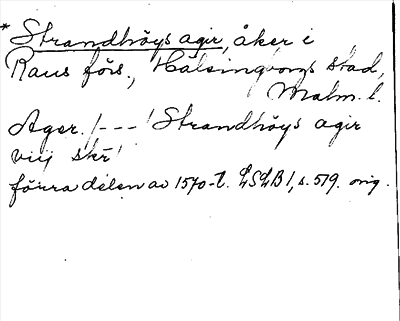 * Strandhöys agir, åker i
Raus förs., Hälsingborgs stad,
Malm. l.
Ager. /--- ' Strandhöys agir
viij skr'
förra delen av 1570-t. LSLB 1, s. 579. orig.